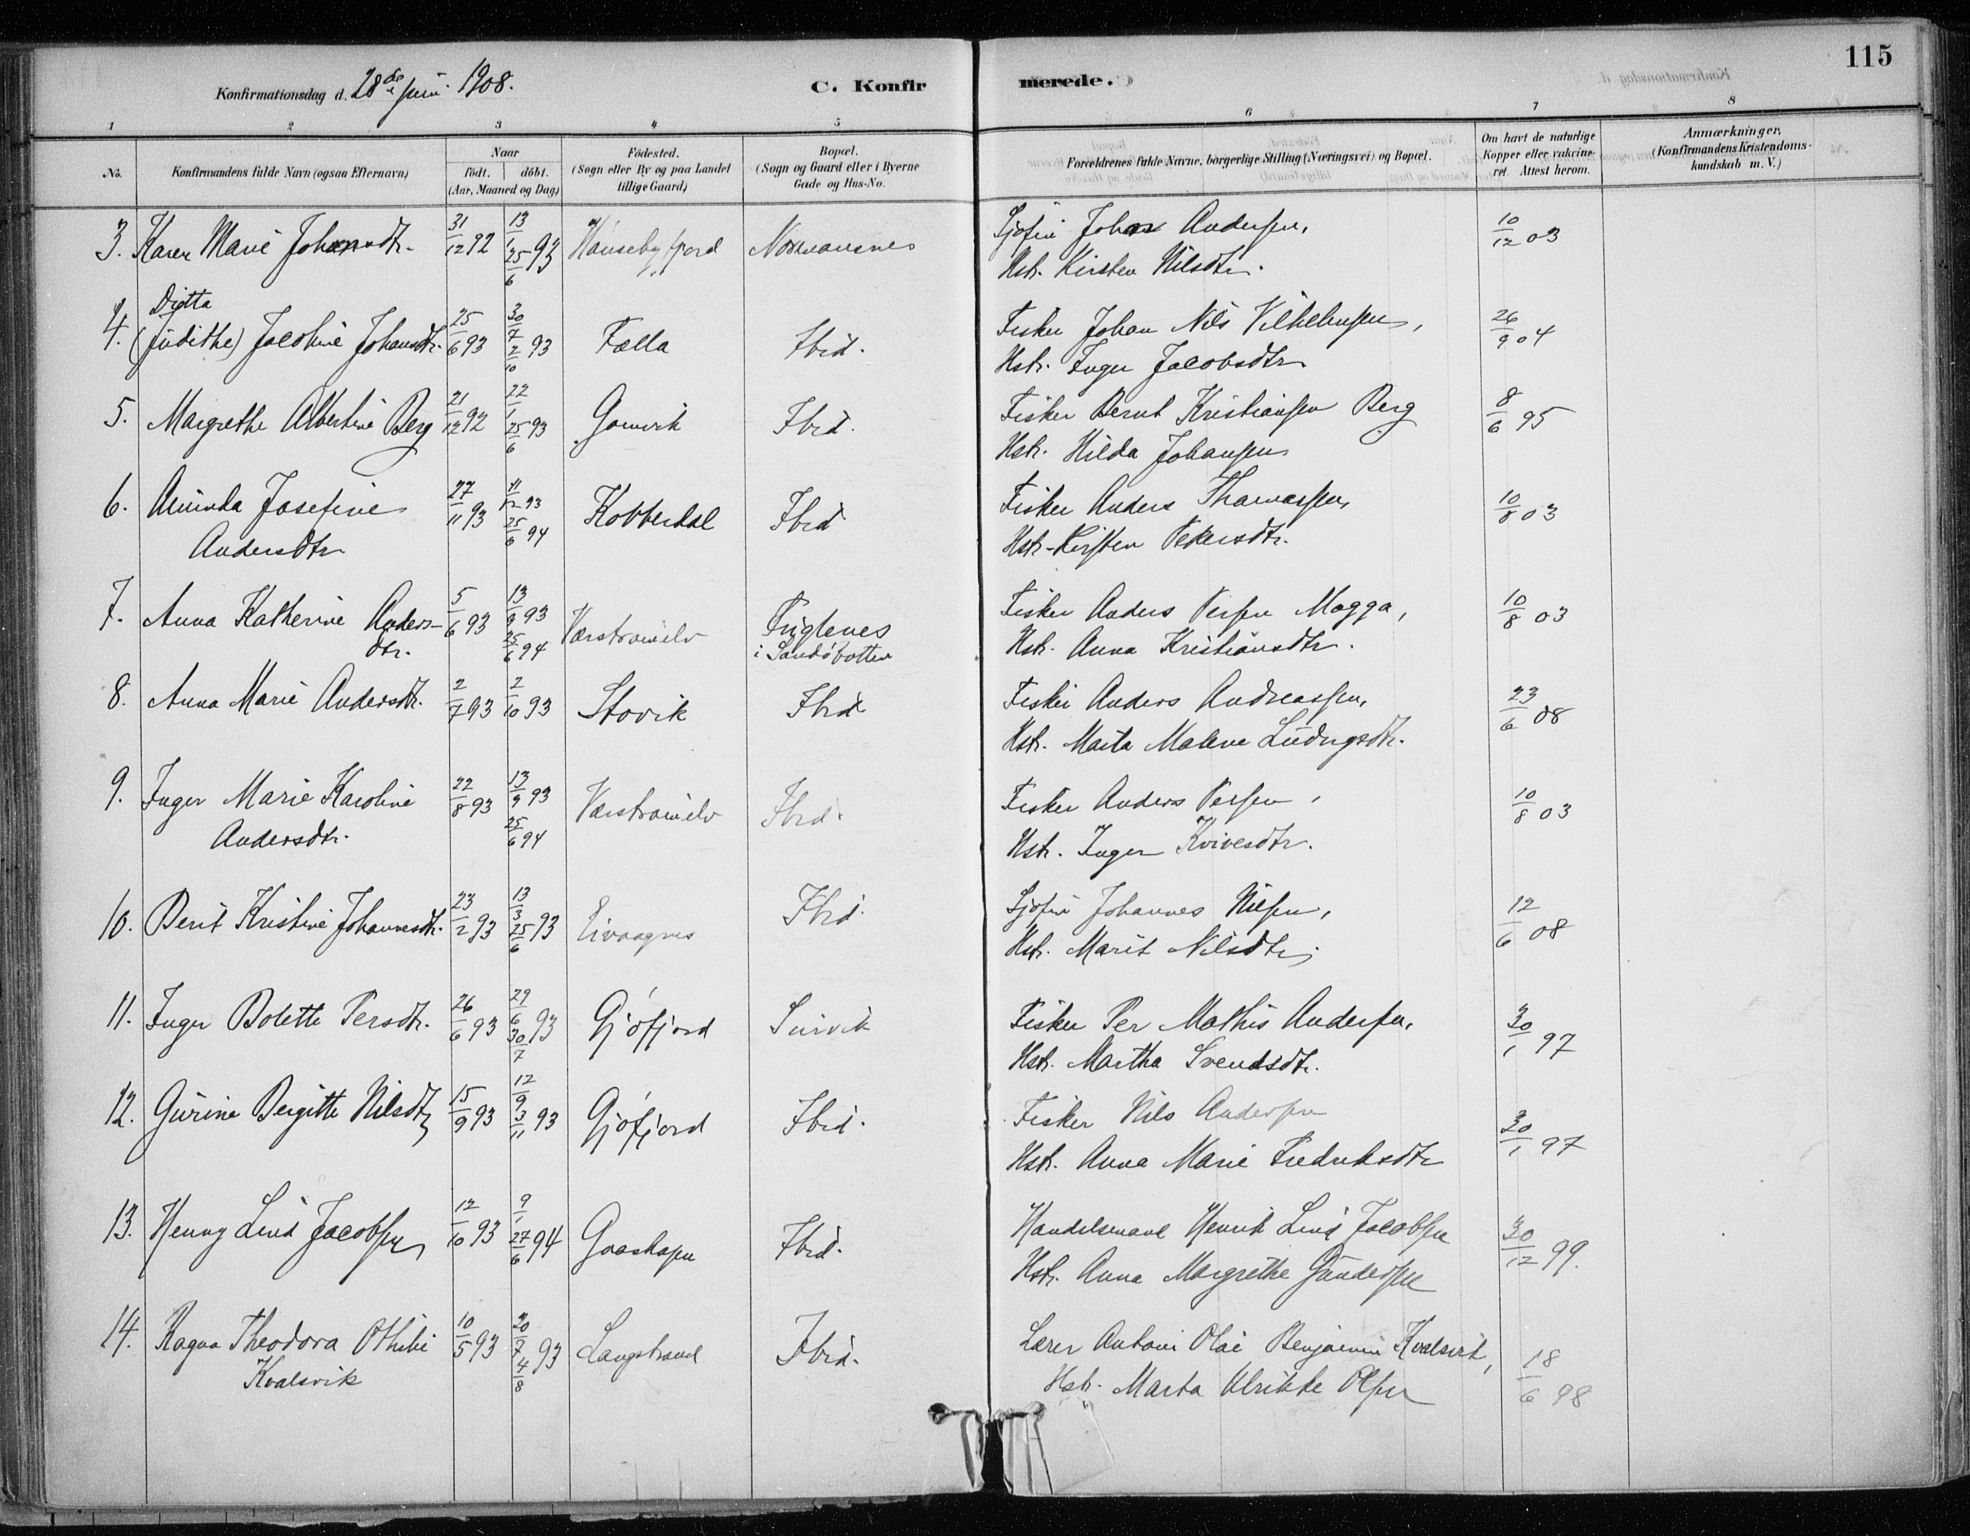 115
Konfirmationsdag d. 28de juni 1908.
C. Konfirmerede.
1 2 3 4 5 6 7 8
No.
Konfirmandens fulde Navn (ogsaa Efternavn)
Naar
födt. döbt.
(Aar, Maaned og Dag)
Födested.
(Sogn eller By og paa Landet
tillige Gaard)
Bopæl.
(Sogn og Gaard eller i Byerne
Gade og Hus-No.
Forældrenes fulde Navne, borgerlige Stilling (Næringsvei) og Bopæl.
Om havt de naturlige
Kopper eller vakcineret.
Attest herom.
Anmærkninger.
(Konfirmandens Kristendomskundskab
m. V.)
3. Karen Marie Johansdtr. 31/12 92 13/1 25/6 93
Sjøfin Johan Andersen, 10/12 03
Hstr. Kirsten Nilsdtr.
Ditta
4. (Judithe) Jacobine Johansdtr. 25/6 93 30/7 2/10 93 Fælla Ibid.
Fisker Johan Nils Vilhelmsen, 26/9 04
Hstr. Inger Jacobsdtr
5. Margrethe Albertine Berg 21/12 92 22/1 25/6 93 Gomvik Ibid.
Fisker Bernt Kristiansen Berg 8/6 95
Hstr. Hilda Johansen
6. Aminda Josefine 27/11 93 11/12 93 25/6 94 Kobberdal Ibid
Andersdtr
Fisker Anders Thomassen, 10/8 03
Hstr. Kirsten Pedersdtr.
7. Anna Katherine Andersdtr. 5/6 93 13/9 93 25/6 94 Fuglenes
i Sandöbotten
Fisker Anders Persen Magga, 10/8 03
Hstr. Anna Kristiansdtr.
8. Anna Marie Andersdtr. 2/7 93 2/10 93 Storvik Ibid
Fisker Anders Andreassen, 23/6 08
Hstr. Marta Malene Ludvigsdtr.
9. Inger Marie Karoline 22/8 93 13/9 93 25/6 94 Ibid.
Andersdtr.
Fisker Anders Persen, 10/8 03
Hstr. Inger Kvivesdtr.
10. Berit Kristine Johannesdtr. 23/2 93 13/3 25/6 93 Ibid.
Sjøfin Johannes Nilsen, 12/6 08
Hstr. Marit Nilsdtr.
11. Inger Bolette Persdtr. 26/6 93 29/6 30/7 93 Gjøfjord
Fisker Per Mathis Andersen, 30/1 97
Hstr. Martha Svendsdtr.
12. Gurine Bergitte Nilsdtr 15/9 93 12/9 3/11 93 Gjøfjord Ibid.
Fisker Nils Andersen 30/1 97
Hstr. Anna Marie Fredriksdtr
13. Henny Lind Jacobsen 12/10 93 9/1 27/6 94 Gaashopen Ibid.
Handelsmand Henrik Lind Jacobsen 30/12 99.
Hstr. Anna Margrethe Gundersen
14. Ragna Theodora Othilie 10/5 93 20/7 4/8 93 Langstrand Ibid.
Kvalsvik
Lærer Antoni Olai Benjamin Kvalsvik, 18/6 98
Hstr. Marta Ulrikke Olsen